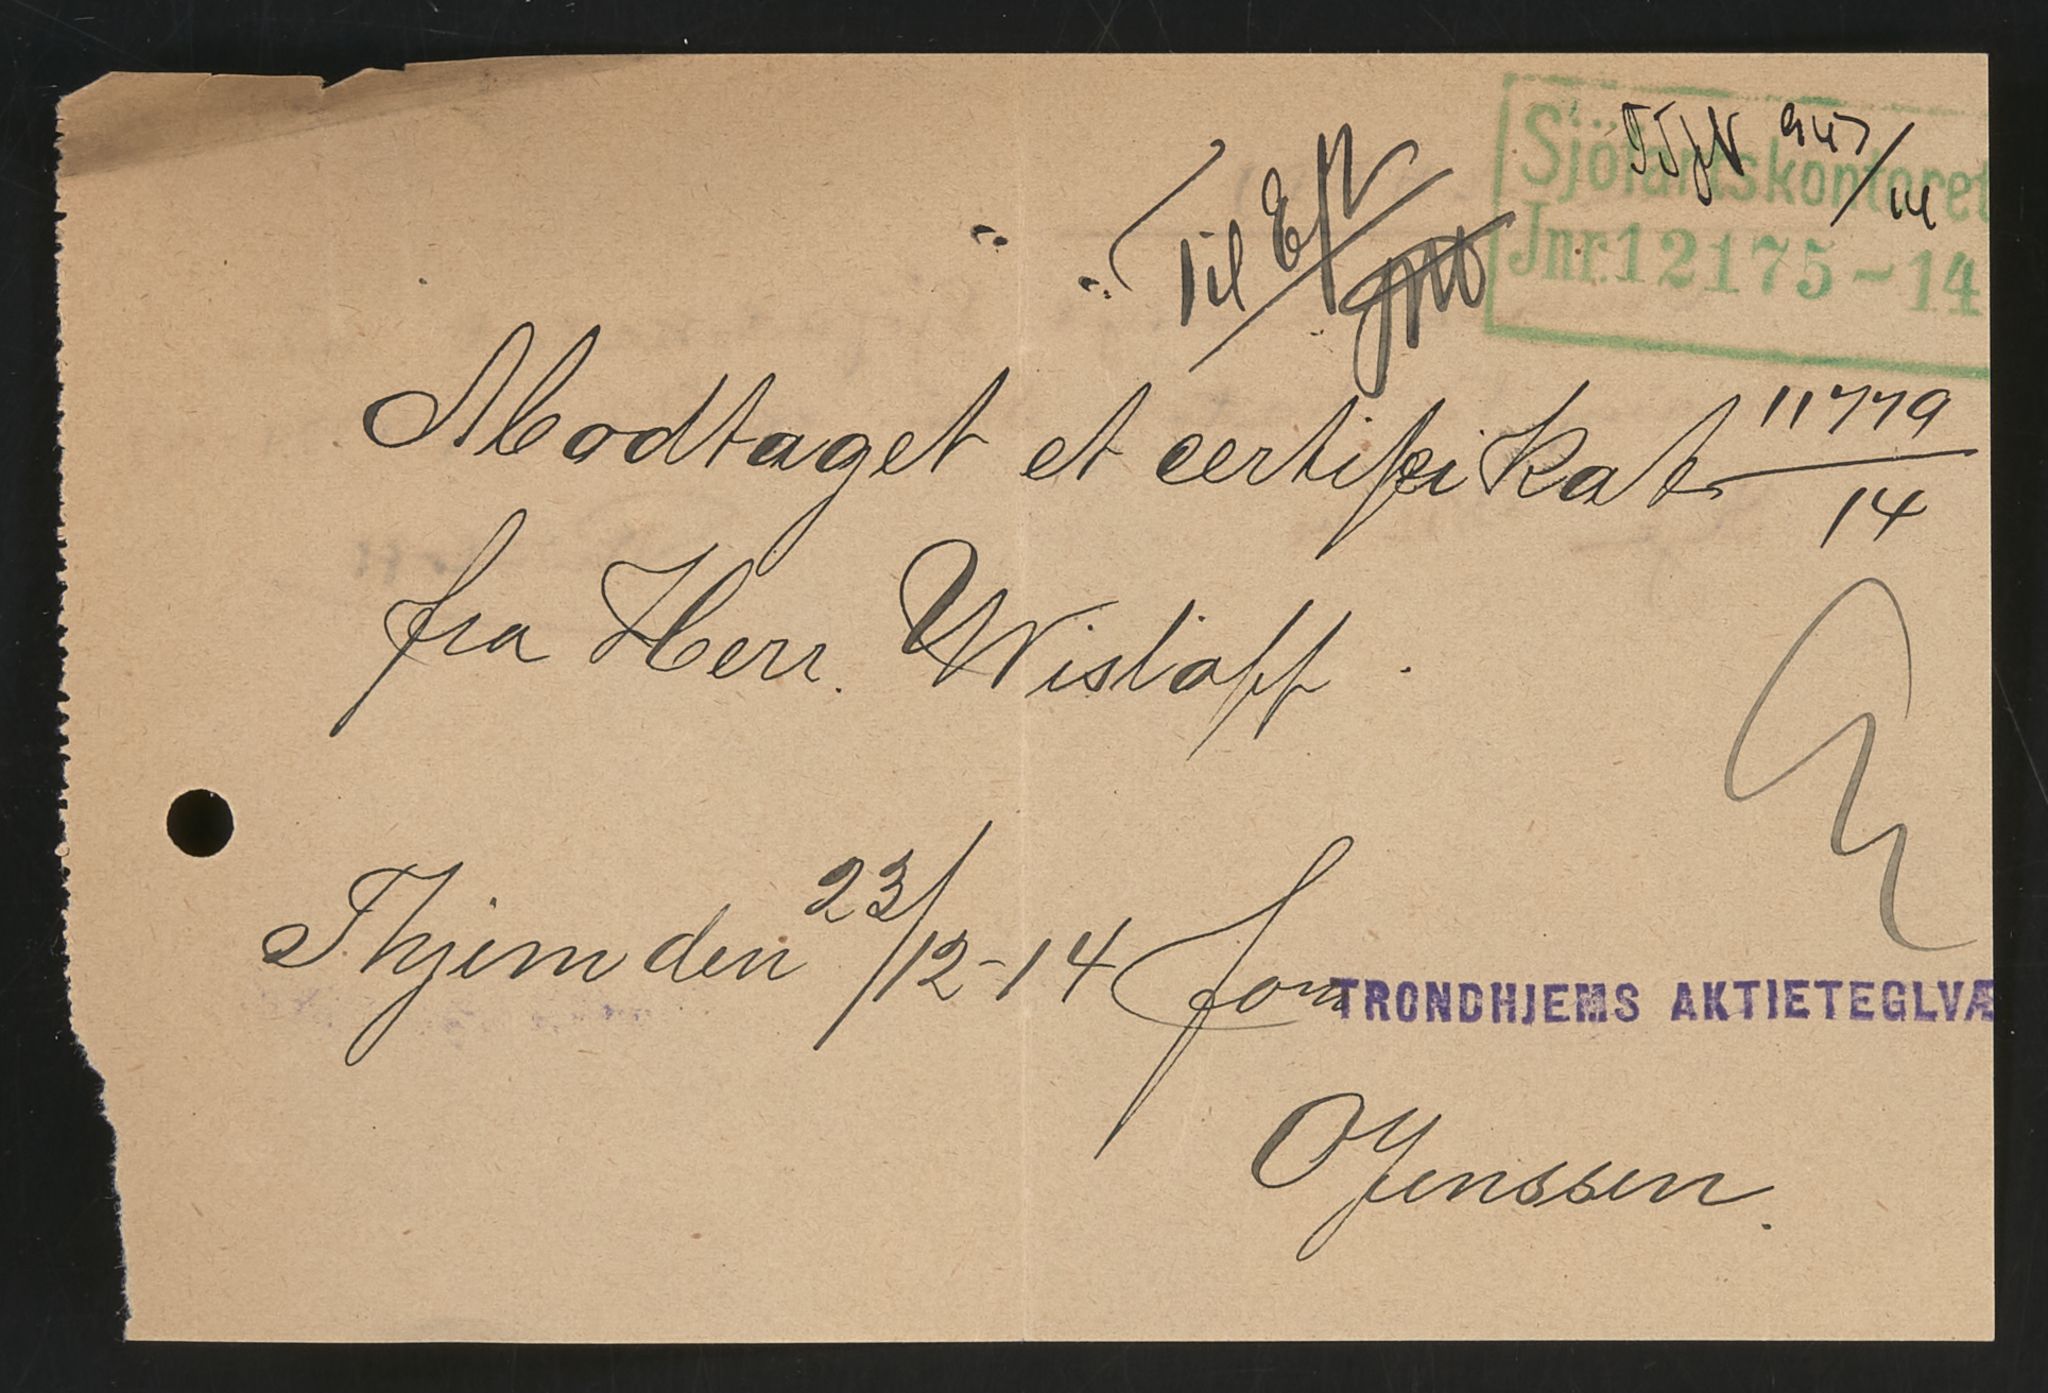 Sjöfartskontoret
Jnr. 12175-14
TTjN 947/14
Til
Modtaget et certifikat 11779/14
fra Herr. Wisløff.
Thjem den 23/12-14 for TRONDHJEMS AKTIETEGLVÆ
O Jenssen.